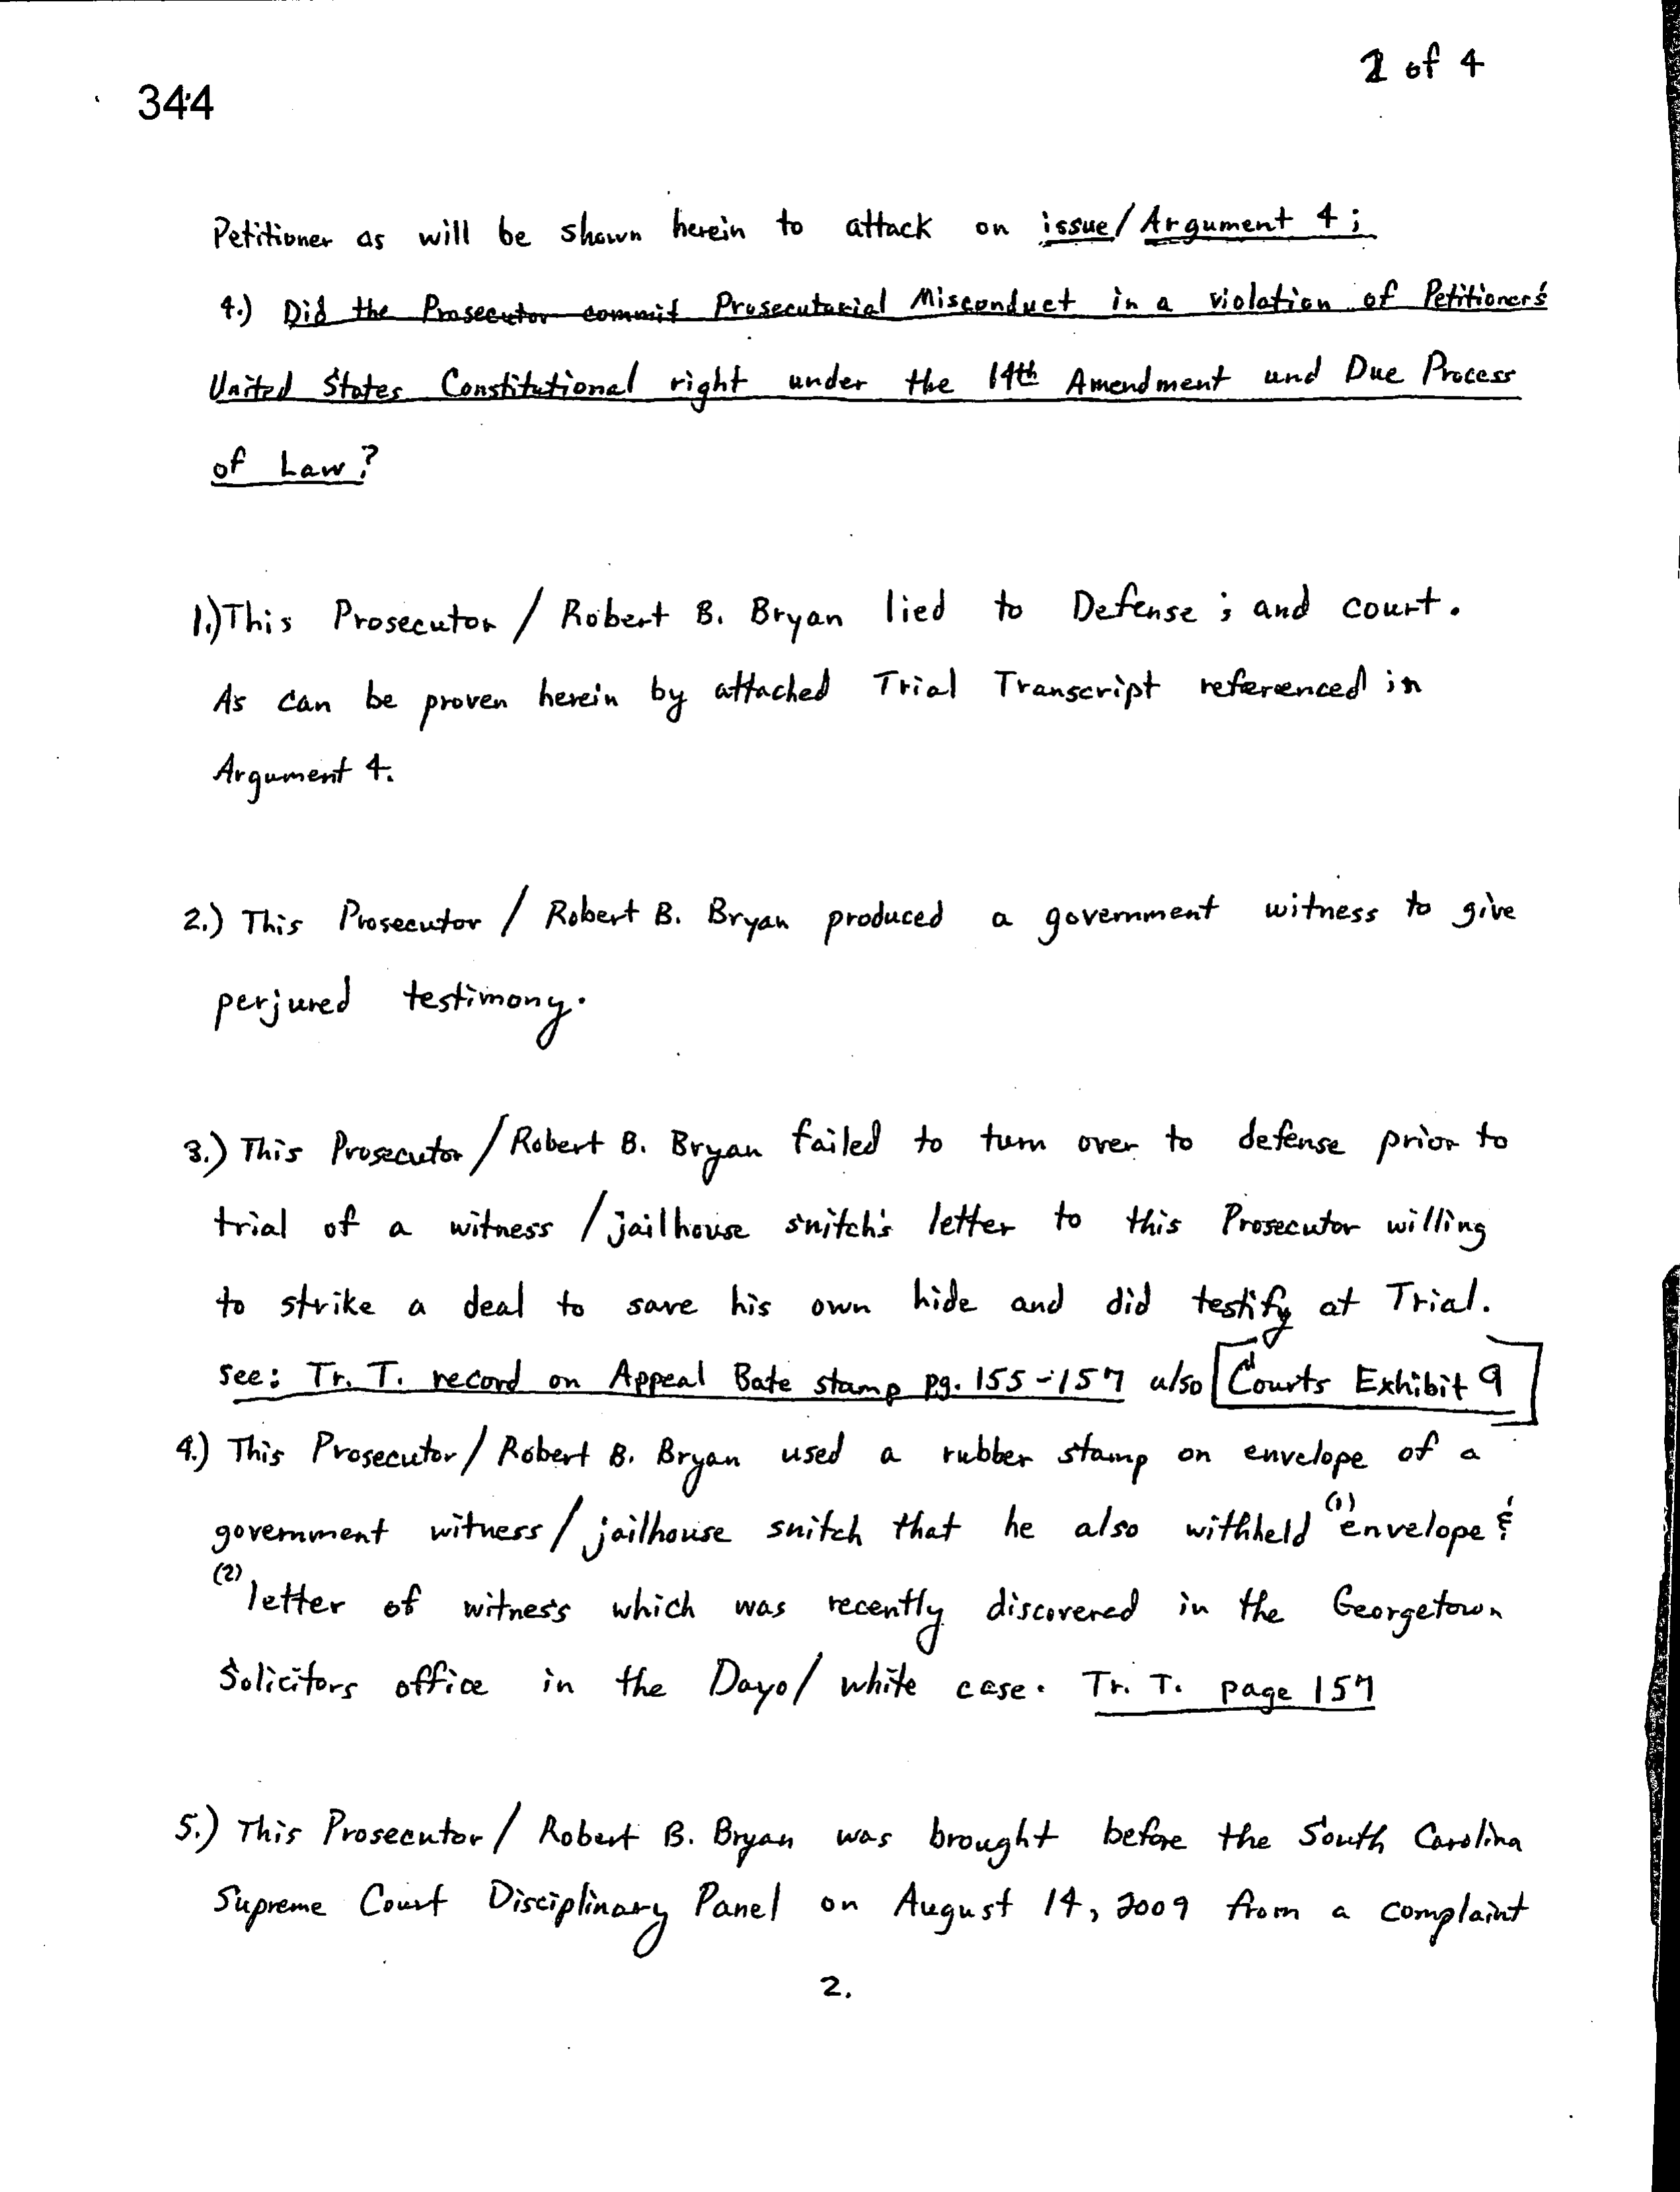 2 of 4
344
Petitioner as will be shown herein to attack on issue/Argument 4;
4.) Did the Prosecutor commit Prosecutarial Misconduct in a violation of Petitioner's
United States Constitutional right under the 14th Amendment and Due Process
of Law?
1.) This Prosecutor / Robert B. Bryan lied to Defense ; and court.
As can be proven herein by attached Trial Transcript referenced in
Argument 4.
2.) This Prosecutor / Robert B. Bryan produced a government witness to give
perjured testimony.
3.) This Prosecutor / Robert B. Bryan failed to turn over to defense prior to
trial of a witness / jailhouse snitch's letter to this Prosecutor willing
to strike a deal to save his own hide and did testify at Trial.
see: Tr. T. record on Appeal Bate stamp pg. 155-157 also Courts Exhibit 9
4.) This Prosecutor / Robert B. Bryan used a rubber stamp on envelope of a
government witness / jailhouse snitch that he also withheld (1) envelope &
(2) letter of witness which was recently discovered in the Georgetown
Solicitors office in the Dayo/ white case. Tr. T. page 157
5.) This Prosecutor / Robert B. Bryan was brought before the South Carolina
Supreme Court Disciplinary Panel on August 14, 2009 from a complaint
2.